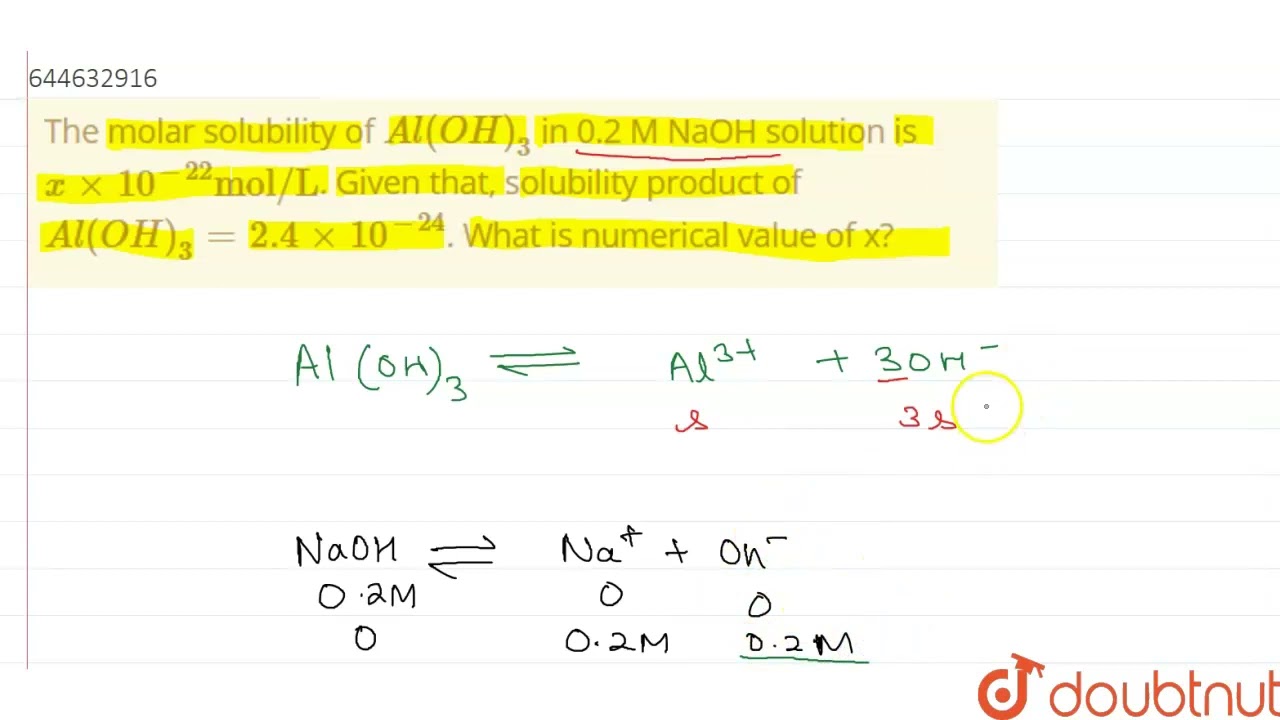 644632916
The molar solubility of Al(OH)₃ in 0.2 M NaOH solution is
x × 10⁻²² mol/L. Given that, solubility product of
Al(OH)₃ = 2.4 × 10⁻²⁴. What is numerical value of x?
Al(OH)₃ ⇌ Al³⁺ + 3OH⁻
s 3s
NaOH ⇌ Na⁺ + OH⁻
0.2M 0 0
0 0.2M 0.2M
doubtnut